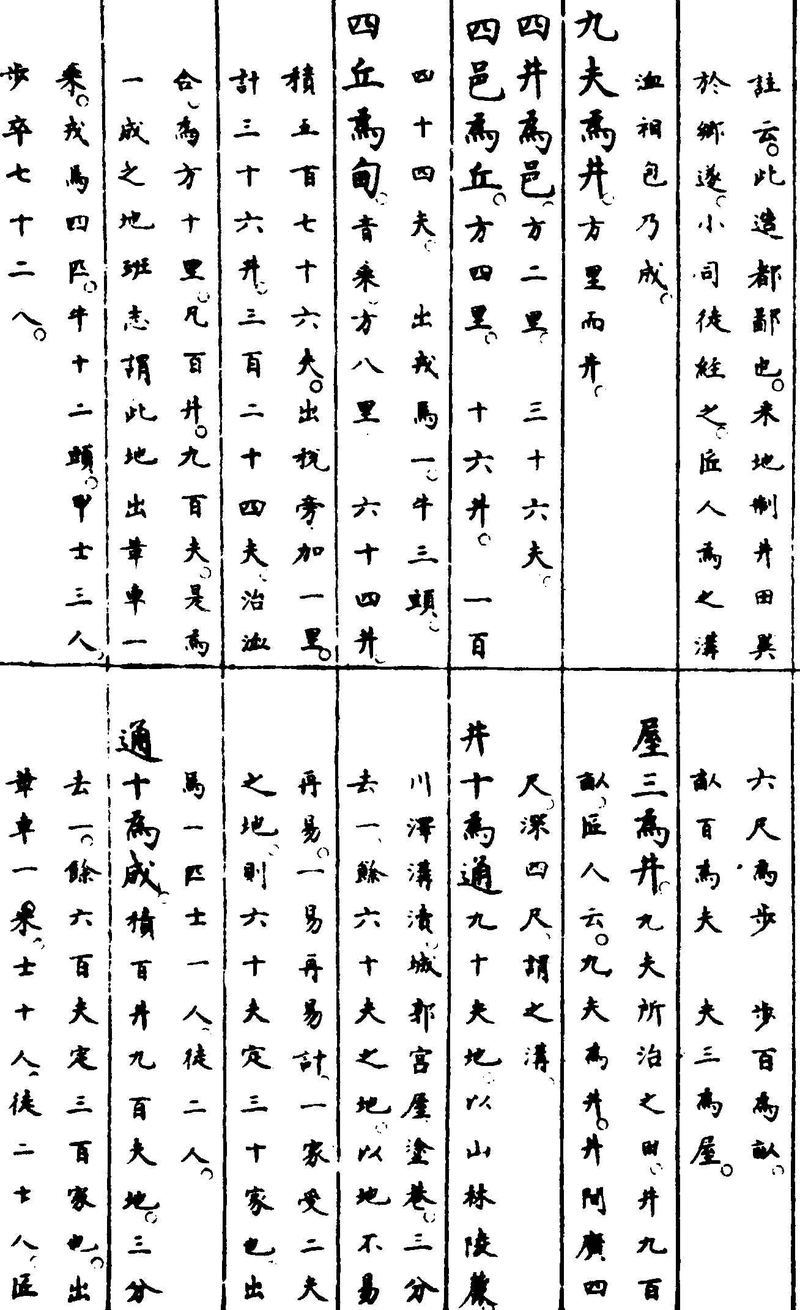 註云。此造都鄙也。采地制井田異
於鄉遂。小司徒經之。匠人為之溝
洫相包乃成。
九夫為井。方里而井。
四井為邑。方二里。 三十六夫。
四邑為丘。方四里。 十六井。 一百
四十四夫。 出戎馬一。牛三頭。
四丘為甸。音乘。方八里 六十四井。
積五百七十六夫。出稅旁加一里。
計三十六井。三百二十四夫。治洫
合為方十里。凡百井。九百夫。是為
一成之地班志謂此地出革車一
乘。戎馬四匹。牛十二頭。甲士三人。
步卒七十二人。
六尺為步 步百為畝。
畝百為夫 夫三為屋。
屋三為井。九夫所治之田。井九百
畝。匠人云。九夫為井。井間廣四
尺。深四尺。謂之溝。
井十為通九十夫地。以山林陵麓
川澤溝瀆。城郭宮屋塗巷。三分
去一。餘六十夫之地。以地不易
再易。一易再易計一家受二夫
之地。則六十夫定三十家也出
馬一匹士一人。徒二人。
通十為成。積百井九百夫地。三分
去一。餘六百夫定三百家也。出
革車一乘。士十人。徒二十人。匠